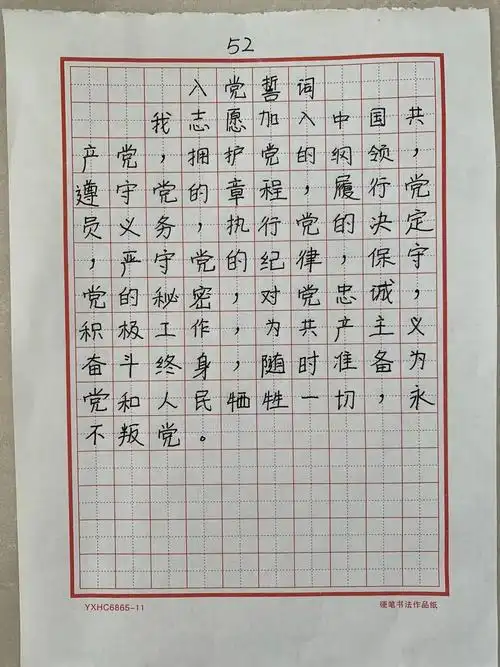 52
入党誓词
我志愿加入中国共
产党，拥护党的纲领，
遵守党的章程，履行党
员义务，执行党的决定
，严守党的纪律，保守
党的秘密，对党忠诚，
积极工作，为共产主义
奋斗终身，随时准备为
党和人民牺牲一切，永
不叛党。
YXHC6865-11 硬笔书法作品纸